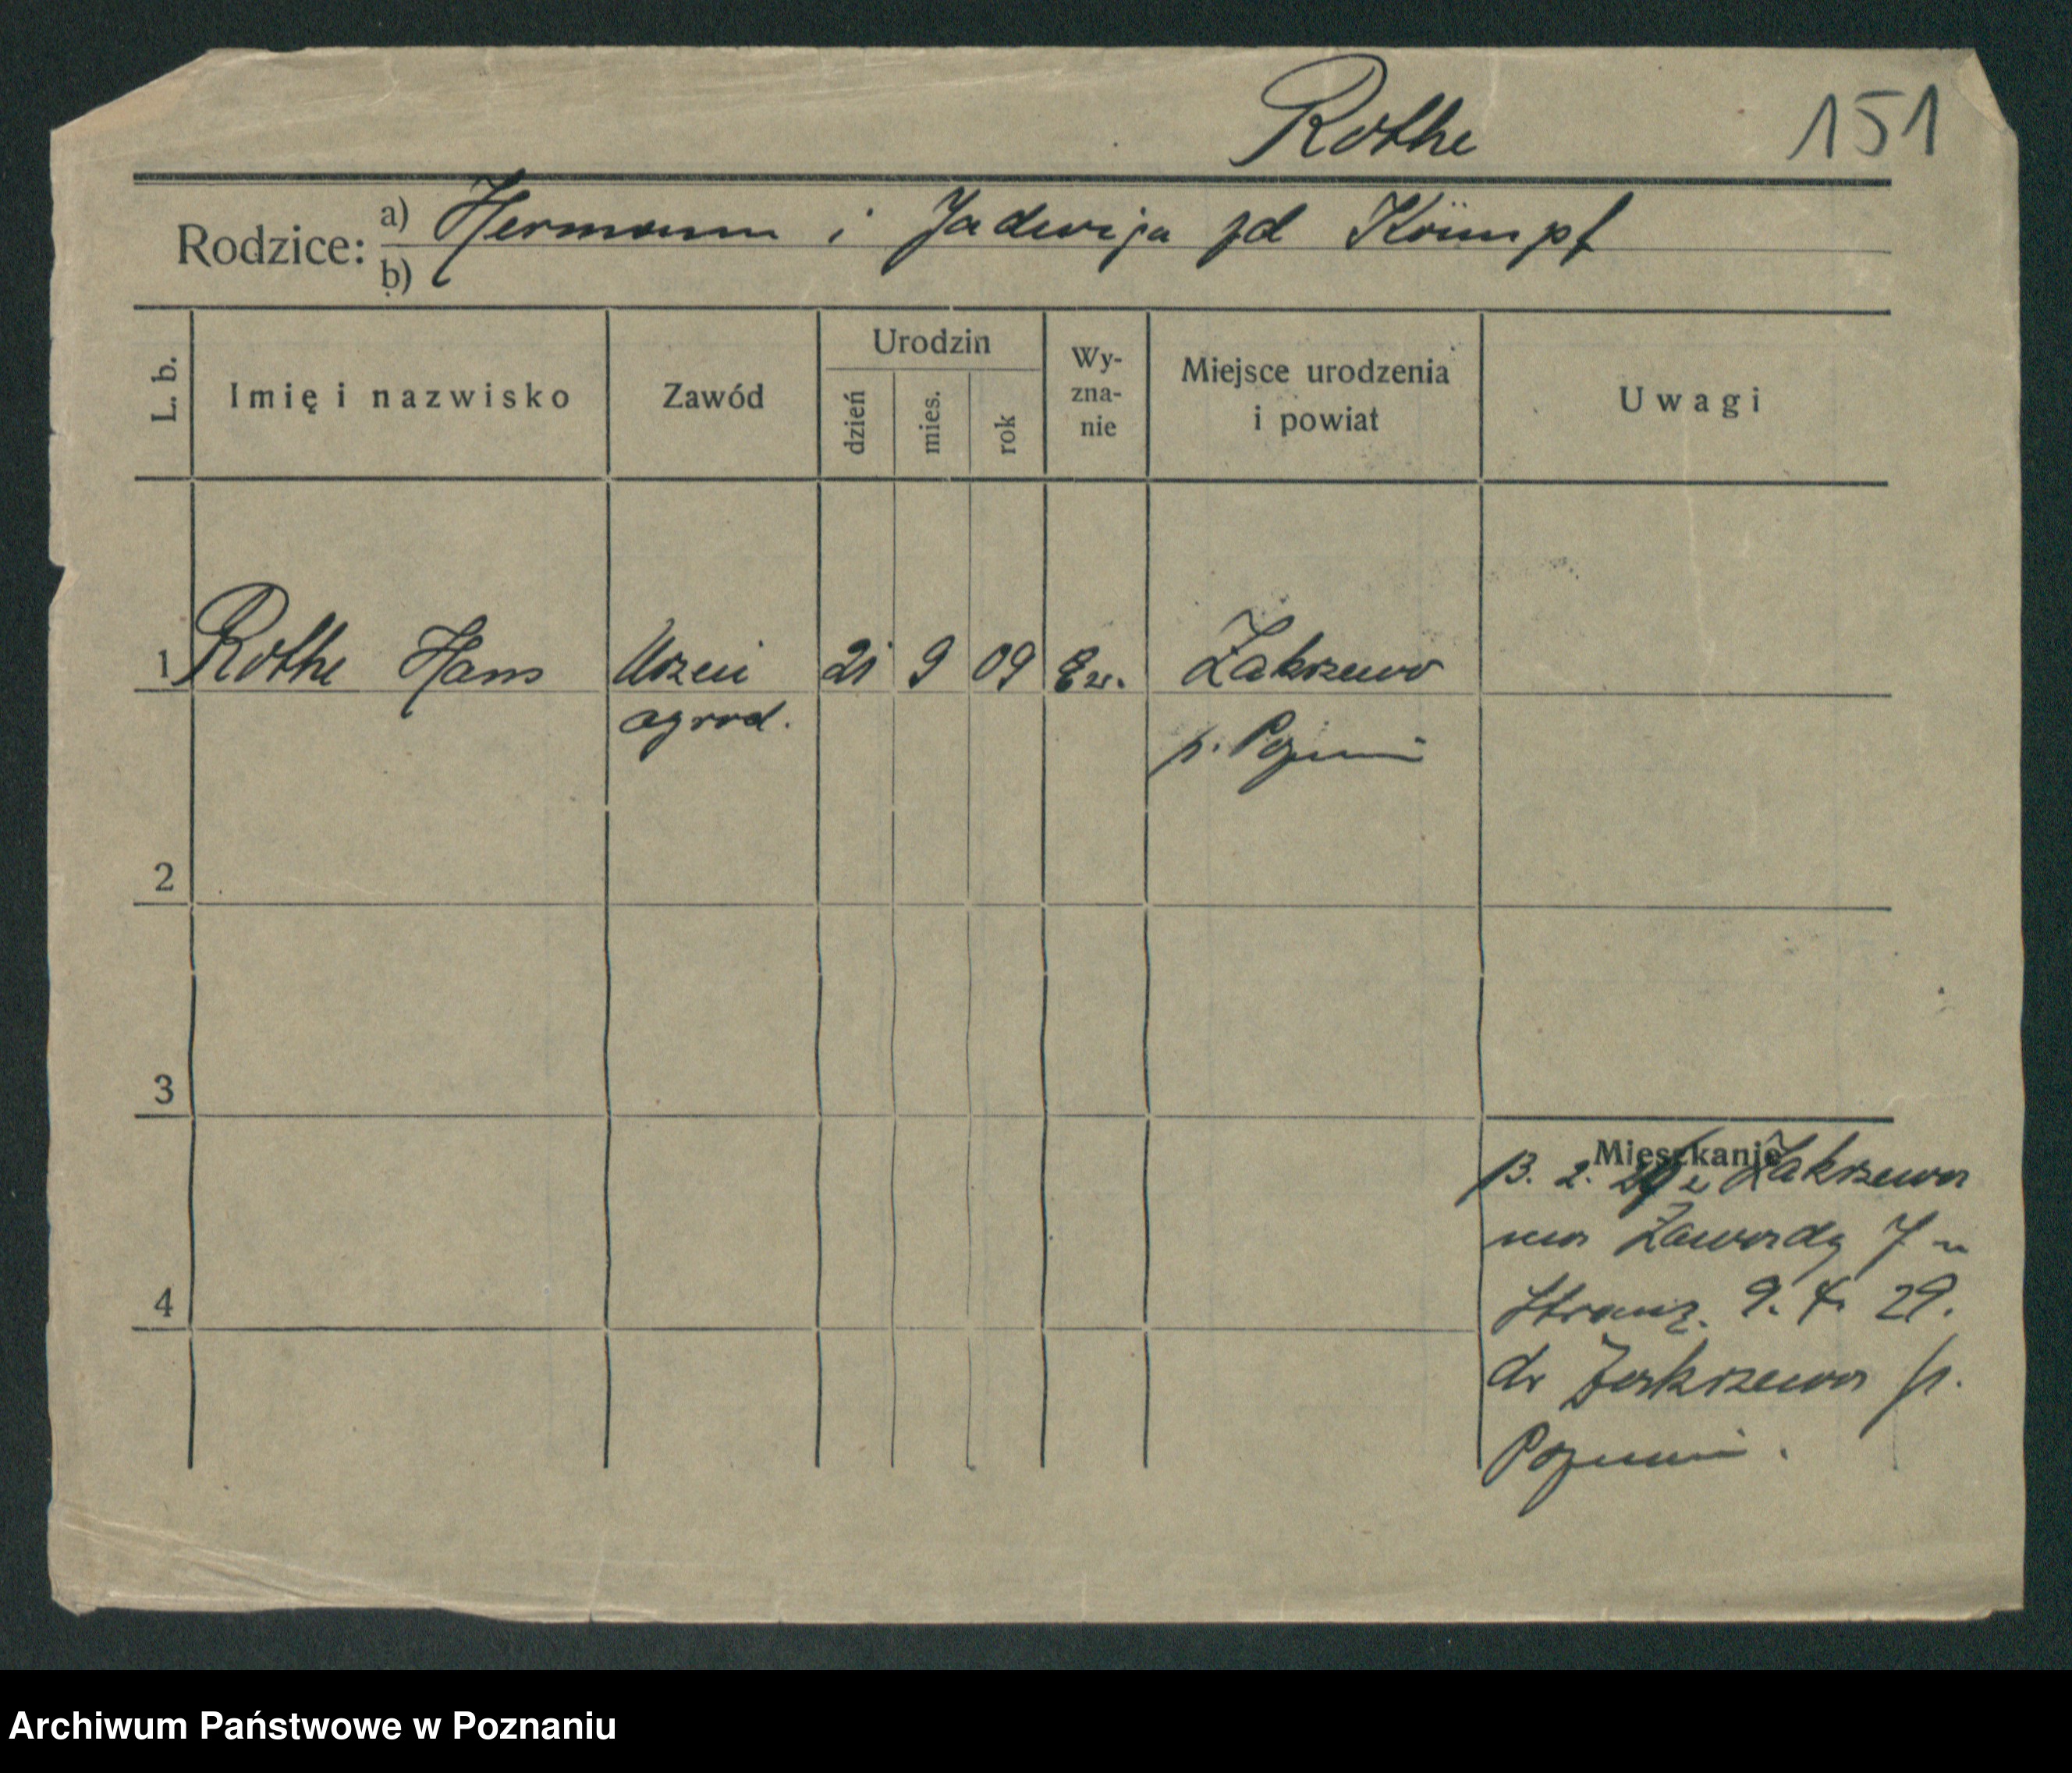 Rothe 151
Rodzice: a) Hermann i Jadwiga zd Kämpf
b)
L. b. Imię i nazwisko Zawód Urodzin dzień mies. rok Wy-zna-nie Miejsce urodzenia i powiat Uwagi
1 Rothe Hans Uczeń 21 9 09 Ew. Zakrzewo
ogrod. p. Poznań
2
3
Mieszkanie
13. 2. z Zakrzewa
na Zawady 7
4
9. 4. 29.
do Zakrzewa p.
Poznań.
Archiwum Państwowe w Poznaniu